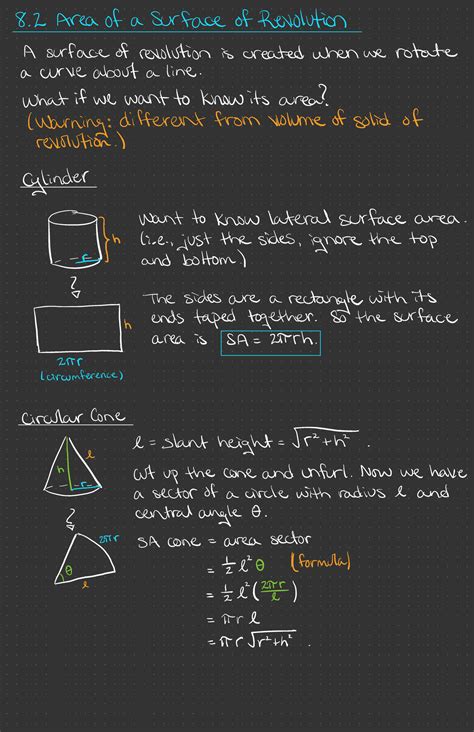 8.2 Area of a Surface of Revolution
A surface of revolution is created when we rotate
a curve about a line.
What if we want to know its area?
(Warning: different from volume of solid of
revolution.)
Cylinder
Want to know lateral surface area.
(i.e., just the sides, ignore the top
and bottom)
h
r
?
The sides are a rectangle with its
ends taped together. So the surface
area is SA = 2πrh.
h
2πr
(circumference)
Circular Cone
l = slant height = √r²+h² .
h
l
r
Cut up the cone and unfurl. Now we have
a sector of a circle with radius l and
central angle θ.
?
2πr
θ
l
SA cone = area sector
= 1/2 l²θ (formula)
= 1/2 l² (2πr/l)
= πr l
= πr √r²+h² .